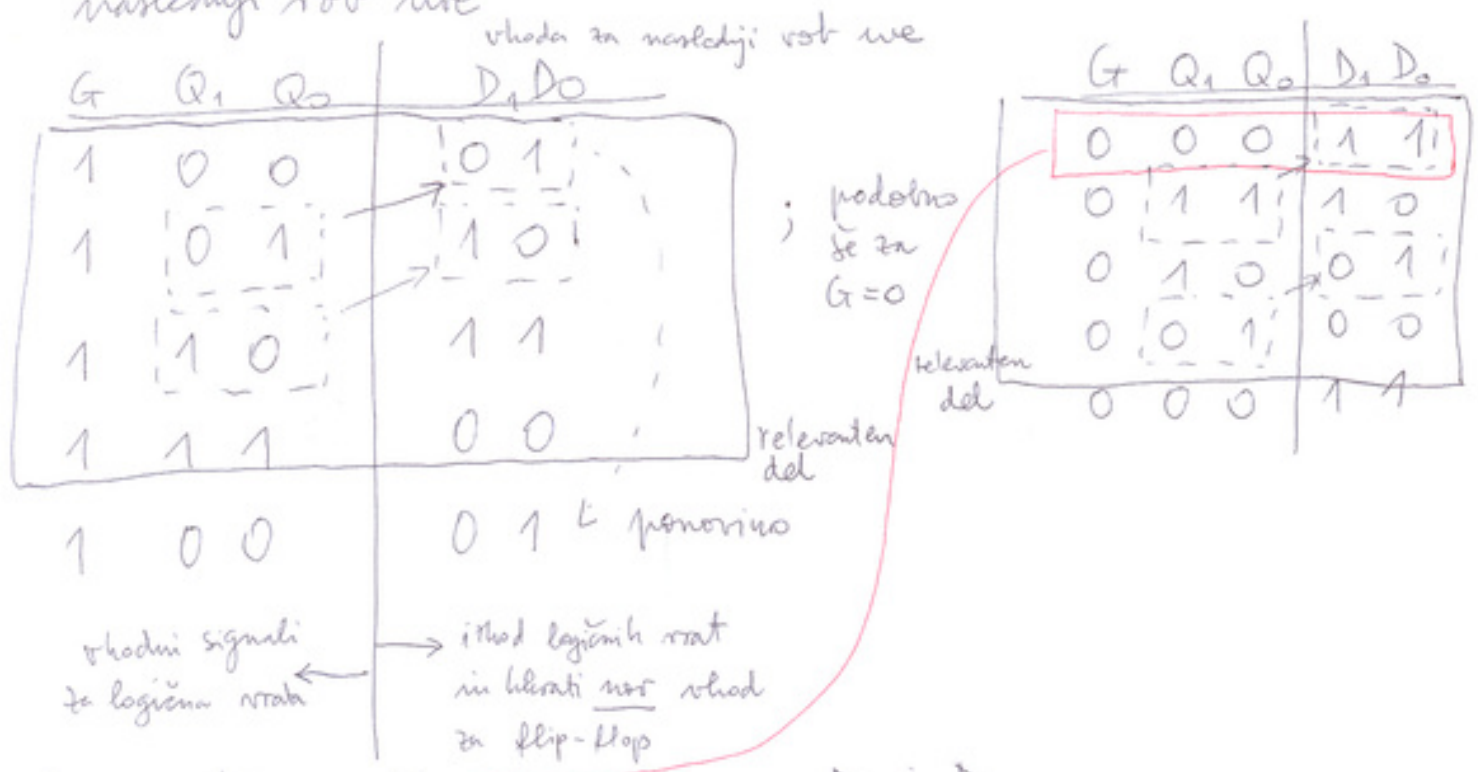 naslednji rob ure
vhoda za naslednji rob ure
G Q1 Q0 D1 D0
1 0 0 0 1
1 0 1 1 0
1 1 0 1 1
1 1 1 0 0
relevanten
del
1 0 0 0 1 ponovimo
vhodni signali
za logična vrata
izhod logičnih vrat
in hkrati nov vhod
za flip-flop
; podobno
še za
G=0
G Q1 Q0 D1 D0
0 0 0 1 1
0 1 1 1 0
0 1 0 0 1
0 0 1 0 0
relevanten
del
0 0 0 1 1